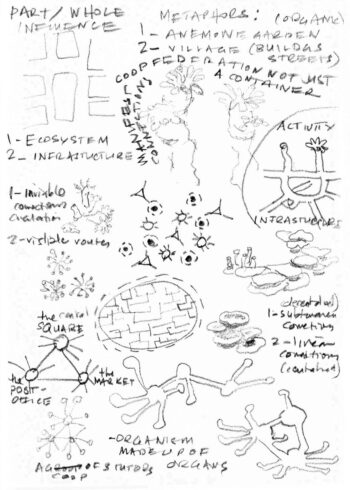 PART/WHOLE
INFLUENCE
METAPHORS: (ORGANIC)
1- ANEMONE GARDEN
2- VILLAGE (BUILDGS
STREETS)
COOPFEDERATION NOT JUST
A CONTAINER
MANIFEST
CONNECTIONS
1- ECOSYSTEM
2- INFRASTUCTURE
ACTIVITY
INFRASTUCTURE
1- Invisible
connections
circulation
2- visible routes
1- Subterranean
connections
2- linear
connections
the central
SQUARE
the
POST-
OFFICE
the
MARKET
-ORGANISM
MADE UP OF
ORGANS
A OF STUDIOS
COOP